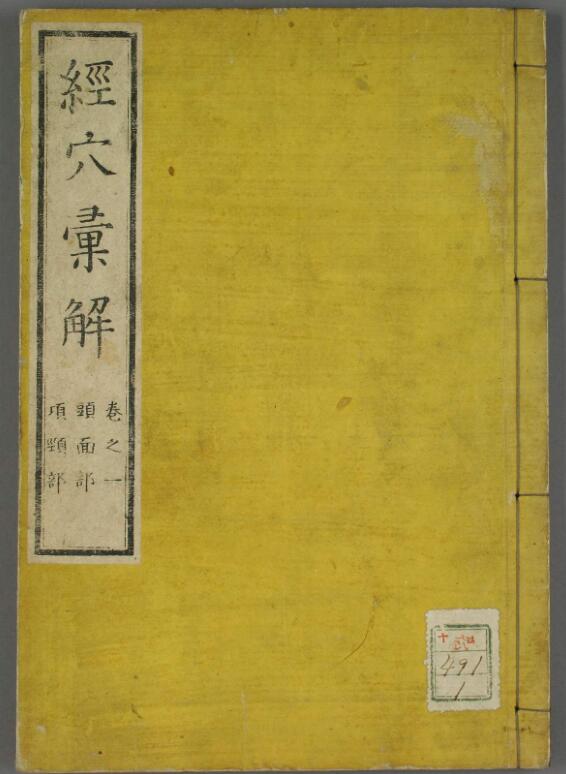 經穴彙解
卷之一
頭面部
項頸部
491
1